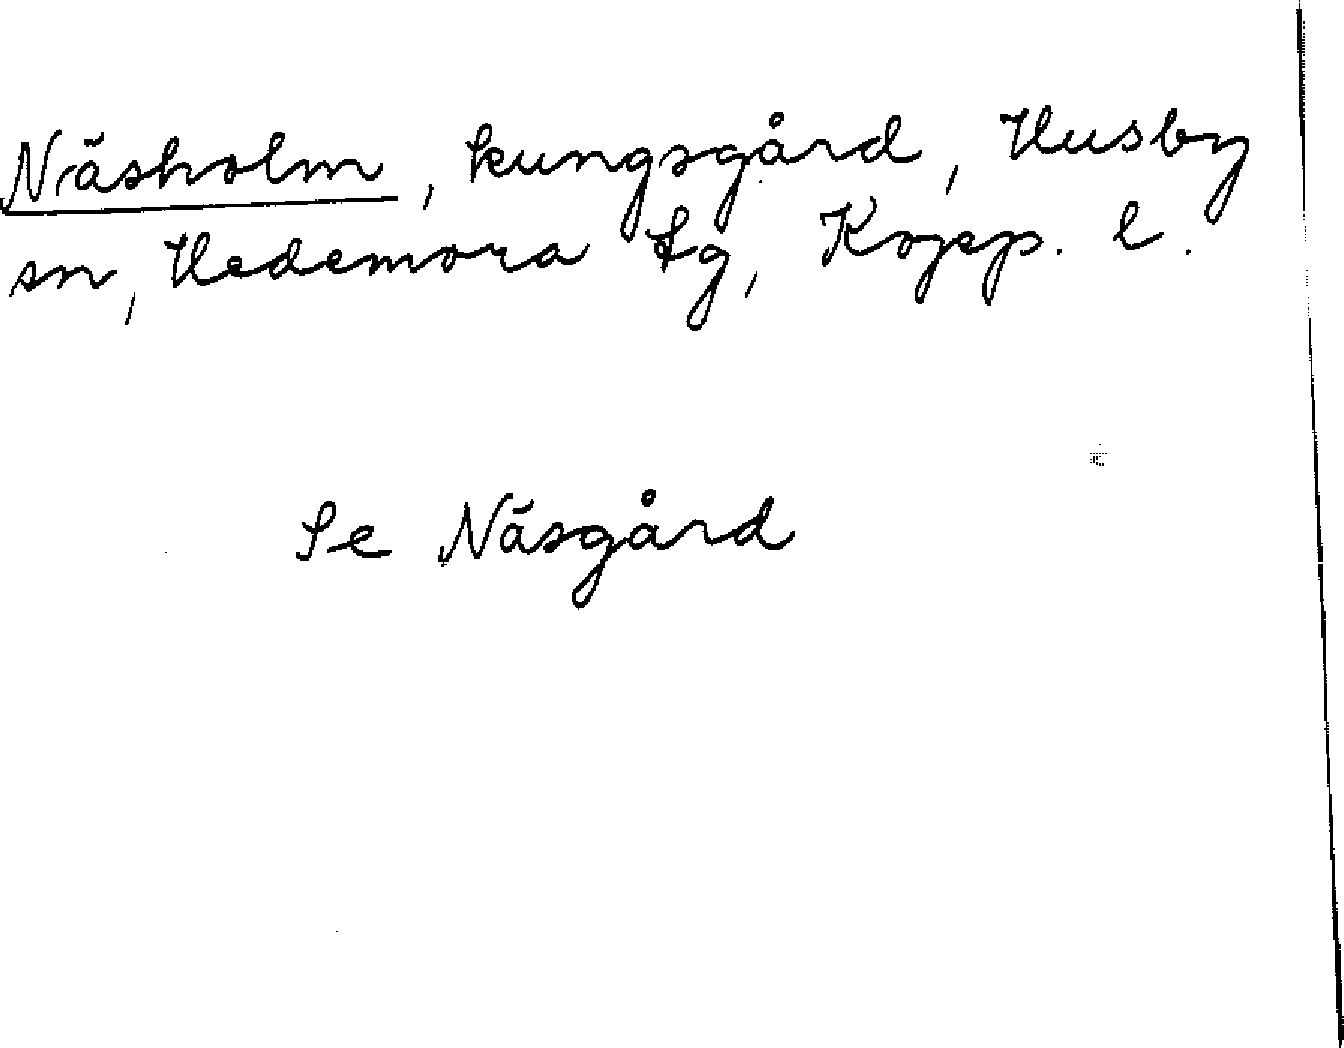 Näsholm, kungsgård, Husby
sn, Hedemora tg, Kopp. l.
Se Näsgård